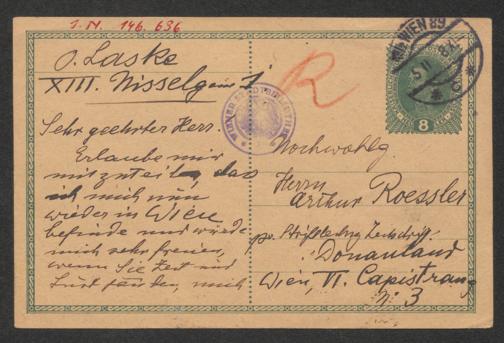 I.N. 146.636
O. Laske
XIII. Nisselgasse 1
Sehr geehrter Herr.
Erlaube mir
mitzuteilen, das
ich mich nun
wieder in Wien
befinde und würde
mich sehr freuen,
wenn Sie Zeit und
Lust fänden, mich
R
WIEN 89
8
Hochwohlg.
Herrn
Arthur Roessler
Donauland
Wien, VI. Capistrang.
Nr 3